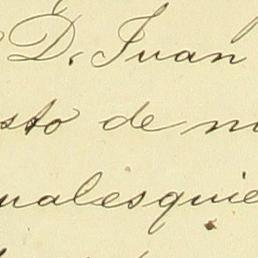 D. Juan
sto de m
ualesquie